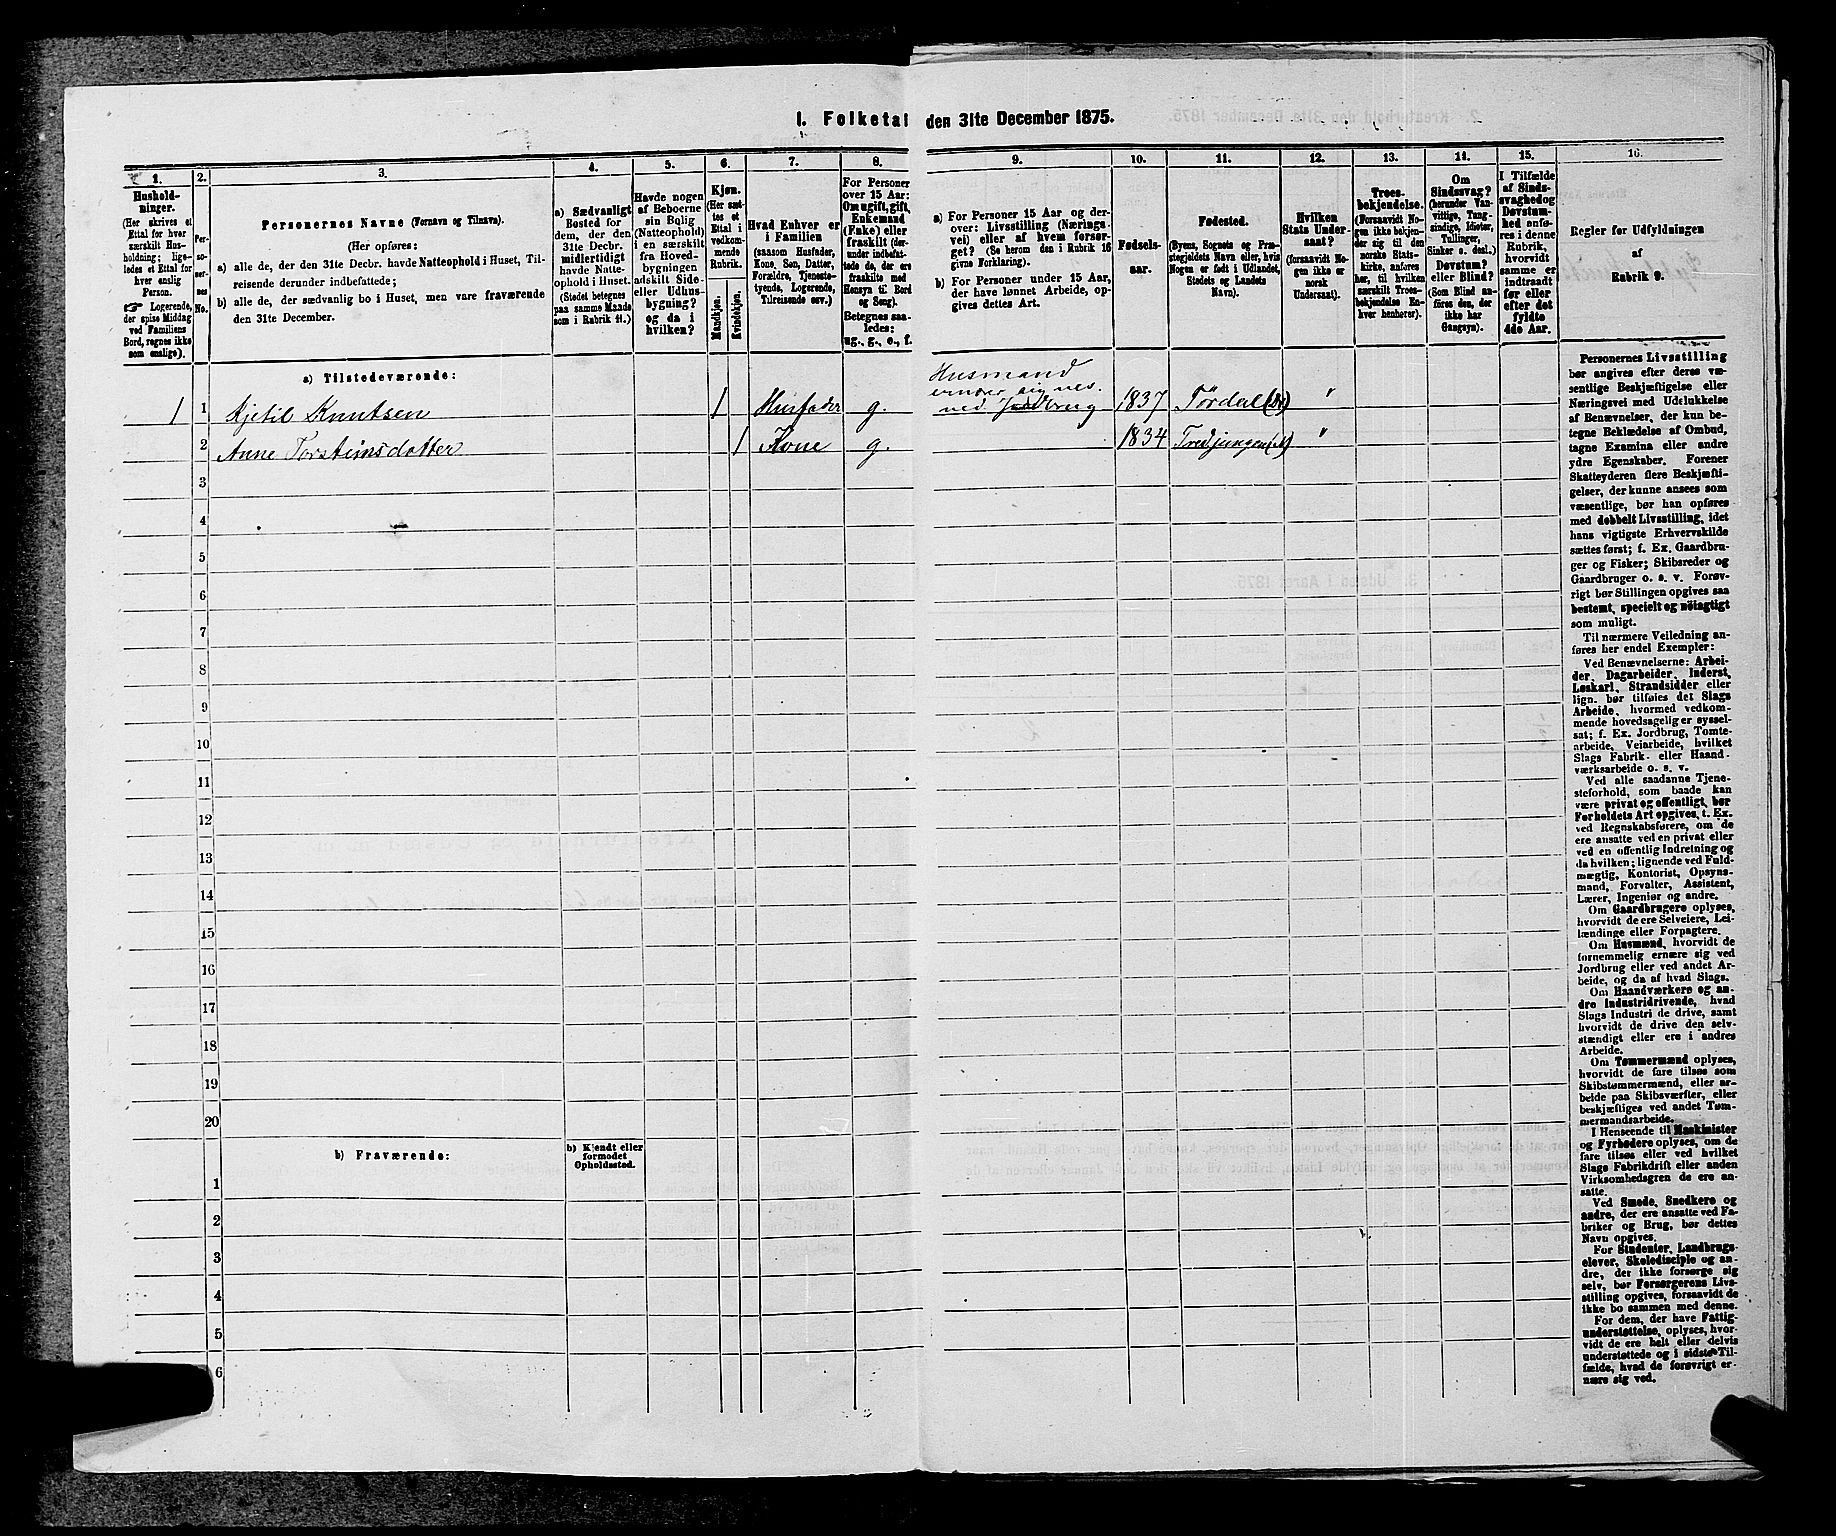 I. Folketal den 31te December 1875.
1.
2.
3.
4.
5.
6.
7.
8.
9.
10.
11.
12.
13.
14.
15.
16.
Hushold-
ninger.
(Her skrives et
Ettal for hver
særskilt Hus-
holdning; lige-
ledes et Ettal for
hver enslig
Person.
☞ Logerende,
der spise Middag
ved Familiens
Bord, regnes ikke
som enslige).
Per-
so-
ner-
nes
No.
Personernes Navne (Fornavn og Tilnavn).
(Her opføres:
a) alle de, der den 31te Decbr. havde Natteophold i Huset, Til-
reisende derunder indbefattede;
b) alle de, der sædvanlig bo i Huset, men vare fraværende
den 31te December.
a) Sædvanligt
Bosted for
dem, der den
31te Decbr.
midlertidigt
havde Natte-
ophold i Huset.
(Stedet betegnes
paa samme Maade
som i Rubrik 11.)
Havde nogen
af Beboerne
sin Bolig
(Natteophold)
i en særskilt
fra Hoved-
bygningen
adskilt Side-
eller Udhus-
bygning?
og da i
hvilken?
Kjøn.
(Her sæt-
tes et
Ettal i
vedkom-
mende
Rubrik.
Mandkjøn.
Kvindekjøn.
Hvad Enhver er
i Familien
(saasom Husfader,
Kone, Søn, Datter,
Forældre, Tjeneste-
tyende, Logerende,
Tilreisende osv.)
For Personer
over 15 Aar:
Om ugift, gift,
Enkemand
(Enke) eller
fraskilt (der-
under indbefat-
tede de, der ere
fraskilte med
Hensyn til Bord
og Seng).
Betegnes saa-
ledes:
ug., g., e., f.
a) For Personer 15 Aar og der-
over: Livsstilling (Nærings-
vei) eller af hvem forsør-
get? (Se herom den i Rubrik 16
givne Forklaring).
b) For Personer under 15 Aar,
der have lønnet Arbeide, op-
gives dettes Art.
Fødsels-
aar.
Fødested.
(Byens, Sognets og Præ-
stegjeldets Navn, eller, hvis
Nogen er født i Udlandet,
Stedets og Landets
Navn).
Hvilken
Stats Under-
saat?
(forsaavidt No-
gen ikke er
norsk
Undersaat).
Troes-
bekjendelse.
(Forsaavidt No-
gen ikke bekjen-
der sig til den
norske Stats-
kirke, anføres
her, til hvilken
særskilt Troes-
bekjendelse En-
hver henhører).
Om
Sindssvag?
(herunder Van-
vittige, Tung-
sindige, Idioter,
Tullinger,
Sinker o. desl.).
Døvstum?
eller Blind?
(Som Blind an-
føres den, der
ikke har
Gangsyn).
I Tilfælde
af Sinds-
svaghed og
Døvstum-
hed anfø-
res i denne
Rubrik,
hvorvidt
samme er
indtraadt
før eller
efter det
fyldte
4de Aar.
Regler for Udfyldningen
af
Rubrik 9.
a) Tilstedeværende:
1 1 Kjetil Knutsen 1 Husfader g. Husmand ernærer sig ved Jordbrug 1837 Tørdal "
2 Anne Torsteinsdatter 1 Kone g. 1834 "
3
4
5
6
7
8
9
10
11
12
13
14
15
16
17
18
19
20
b) Fraværende:
b) Kjendt eller
formodet
Opholdssted.
1
2
3
4
5
6
Personernes Livsstilling
bør angives efter deres væ-
sentlige Beskjæftigelse eller
Næringsvei med Udelukkelse
af Benævnelser, der kun be-
tegne Beklædelse af Ombud,
tagne Examina eller andre
ydre Egenskaber. Forener
Skatteyderen flere Beskjæfti-
gelser, der kunne ansees som
væsentlige, bør han opføres
med dobbelt Livsstilling, idet
hans vigtigste Erhvervskilde
sættes først; f. Ex. Gaardbru-
ger og Fisker; Skibsreder og
Gaardbruger o. s. v. Forøv-
rigt bør Stillingen opgives saa
bestemt, specielt og nöiagtigt
som muligt.
Til nærmere Veiledning an-
føres her endel Exempler:
Ved Benævnelserne: Arbei-
der, Dagarbeider, Inderst,
Løskarl, Strandsidder eller
lign. bør tilføies det Slags
Arbeide, hvormed vedkom-
mende hovedsagelig er syssel-
sat; f. Ex. Jordbrug, Tomte-
arbeide, Veiarbeide, hvilket
Slags Fabrik- eller Haand-
værksarbeide o. s. v.
Ved alle saadanne Tjene-
steforhold, som baade kan
være privat og offentligt, bør
Forholdets Art opgives, t. Ex.
ved Regnskabsførere, om de
ere ansatte ved en privat eller
ved en offentlig Indretning og
da hvilken; lignende ved Fuld-
mægtig, Kontorist, Opsyns-
mand, Forvalter, Assistent,
Lærer, Ingeniør og andre.
Om Gaardbrugere oplyses,
hvorvidt de ere Selveiere, Lei-
lændinge eller Forpagtere.
Om Husmænd, hvorvidt de
fornemmelig ernære sig ved
Jordbrug eller ved andet Ar-
beide, og da af hvad Slags.
Om Haandværkere og an-
dre Industridrivende, hvad
Slags Industri de drive, samt
hvorvidt de drive den selv-
stændigt eller ere i andres
Arbeide.
Om Tømmermænd oplyses,
hvorvidt de fare tilsøs som
Skibstømmermænd, eller ar-
beide paa Skibsværfter, eller
beskjæftiges ved andet Tøm-
mermandsarbeide.
I Henseende til Maskinister
og Fyrbødere oplyses, om de
fare tilsøs eller ved hvilket
Slags Fabrikdrift eller anden
Virksomhedsgren de ere an-
satte.
Ved Smede, Snedkere og
andre, der ere ansatte ved Fa-
briker og Brug, bør dettes
Navn opgives.
For Studenter, Landbrugs-
elever, Skoledisciple og an-
dre, der ikke forsørge sig
selv, bør Forsørgerens Livs-
stilling opgives, forsaavidt de
ikke bo sammen med denne.
For dem, der have Fattig-
understøttelse, oplyses, hvor-
vidt de ere helt eller delvis
understøttede og i sidste Til-
fælde, hvad de forøvrigt er-
nære sig ved.